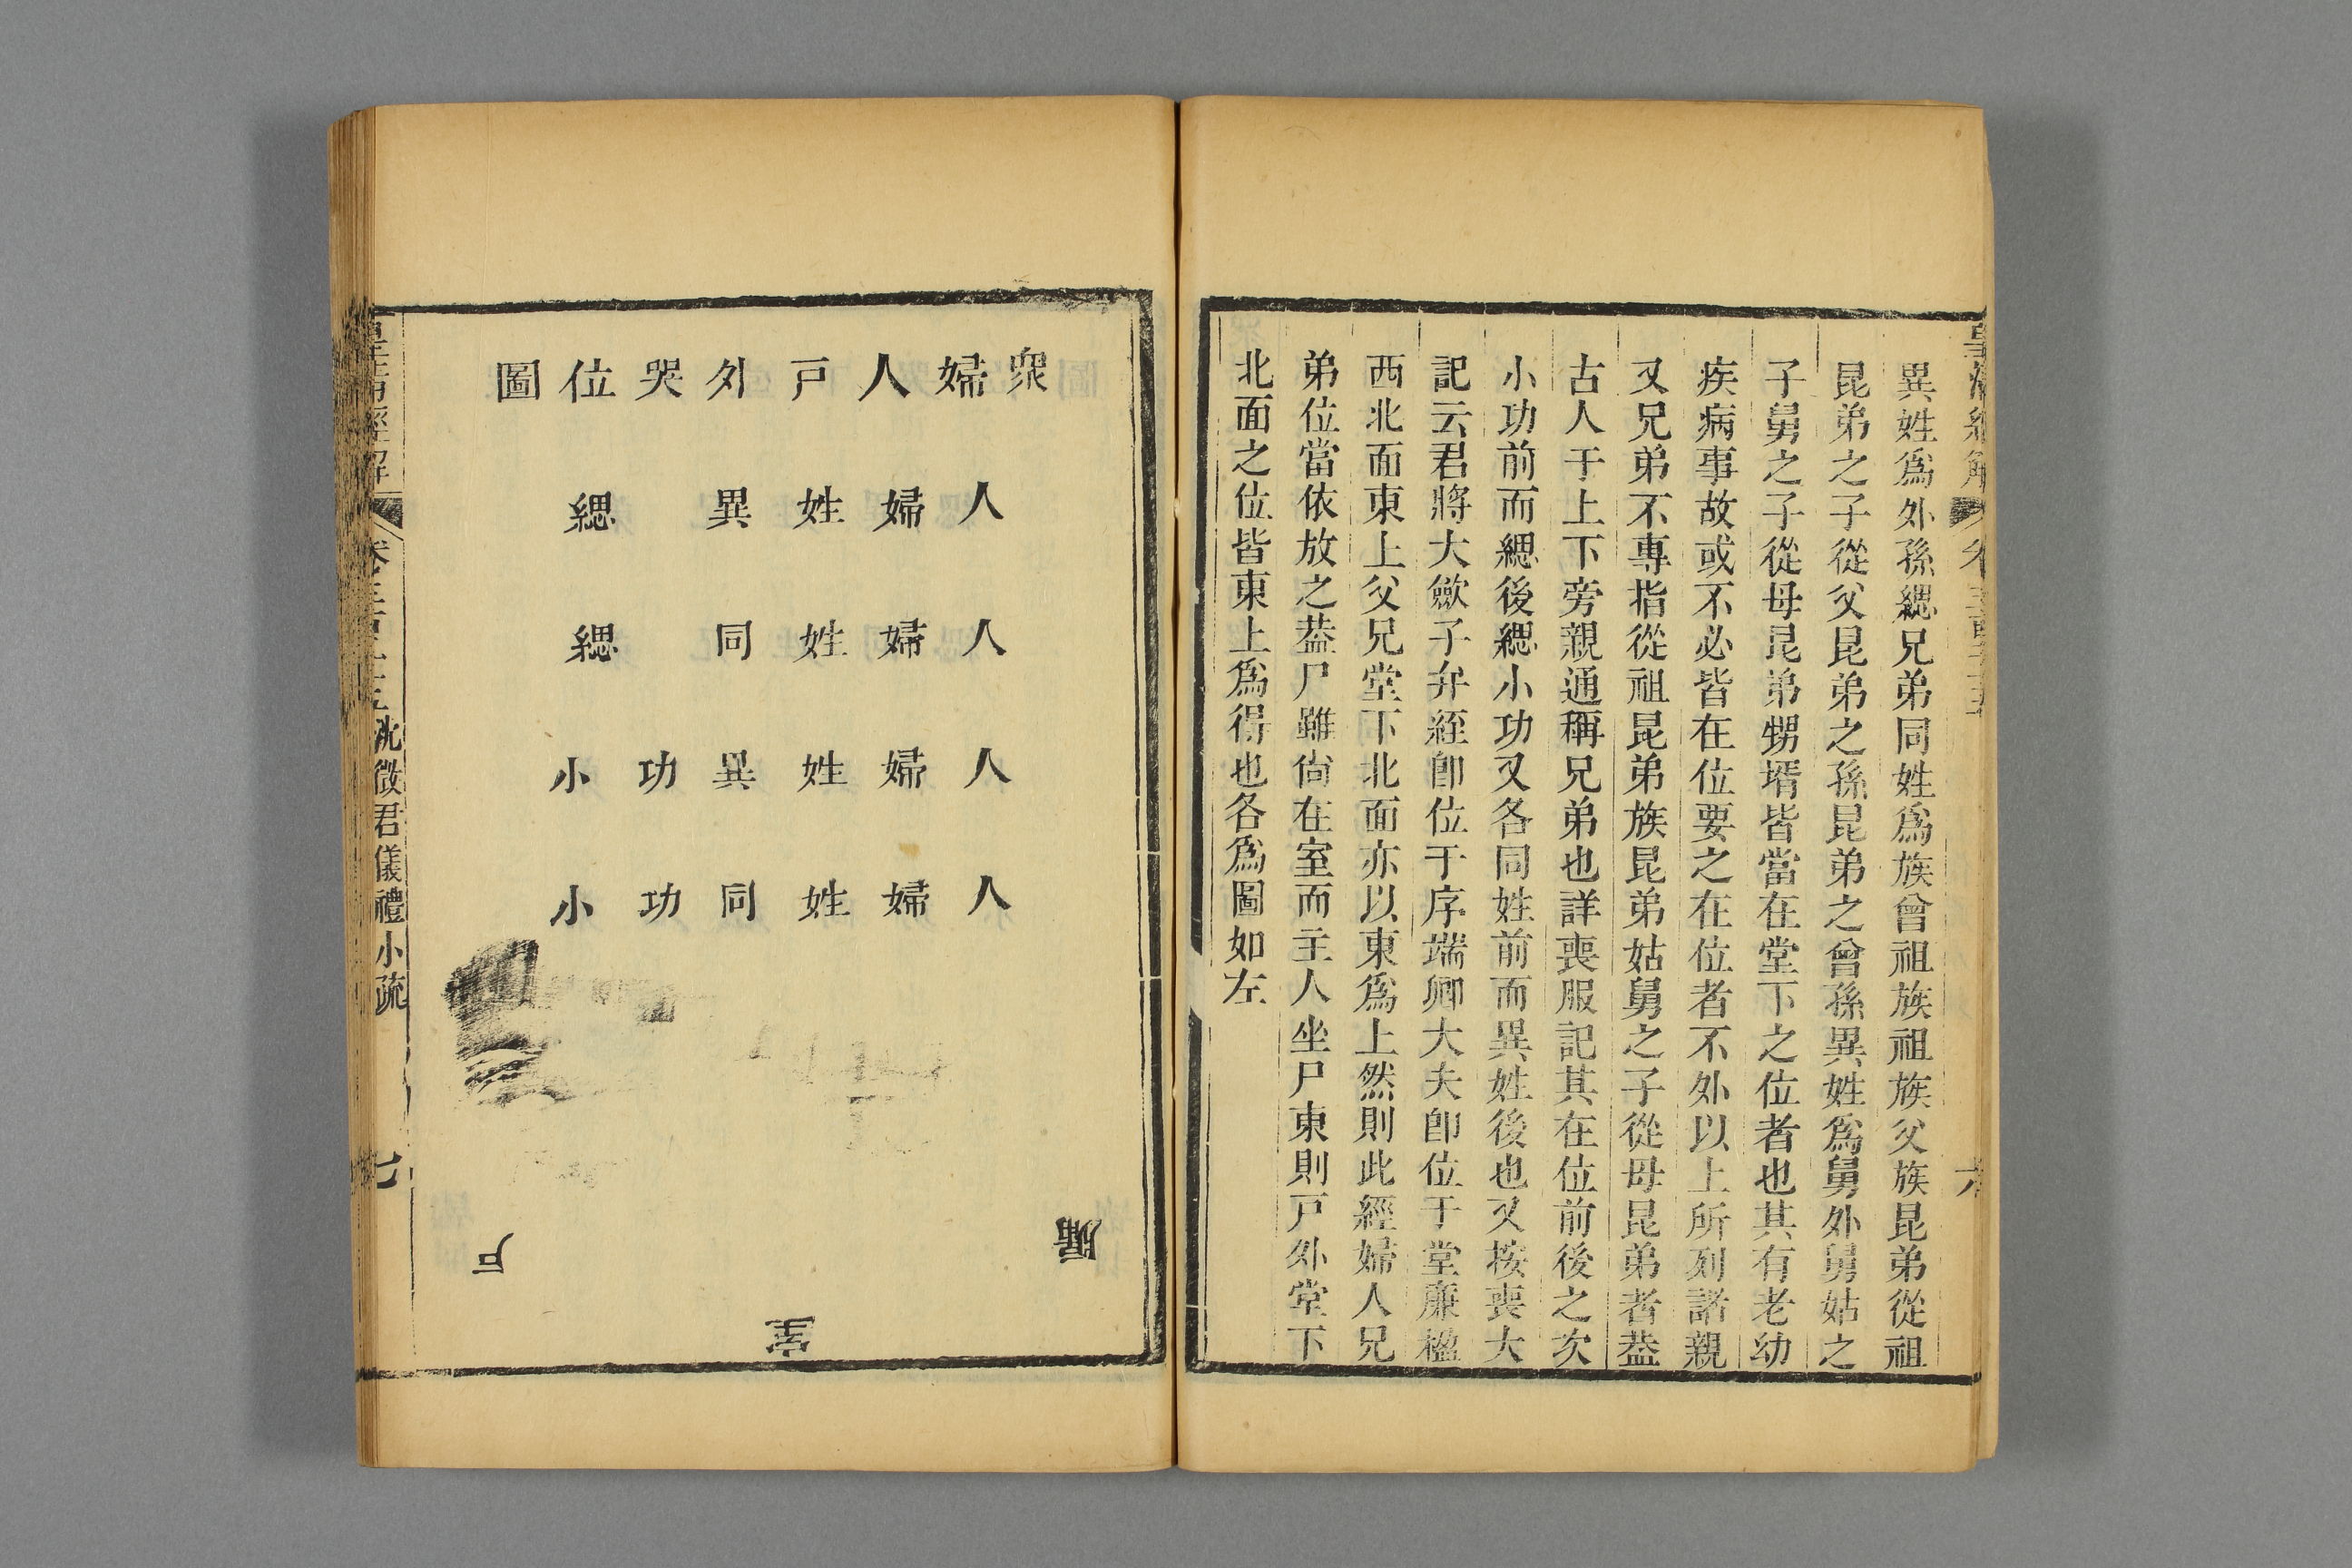 異姓爲外孫緦兄弟同姓爲族曾祖族祖族父族昆弟從祖
昆弟之子從父昆弟之孫昆弟之曾孫異姓爲舅外舅姑之
子舅之子從母昆弟甥壻皆當在堂下之位者也其有老幼
疾病事故或不必皆在位要之在位者不外以上所列諸親
又兄弟不專指從祖昆弟族昆弟姑舅之子從母昆弟者葢
古人于上下旁親通稱兄弟也詳喪服記其在位前後之次
小功前而緦後緦小功又各同姓前而異姓後也又按喪大
記云君將大斂子弁絰卽位于序端卿大夫卽位于堂廉楹
西北面東上父兄堂下北面亦以東爲上然則此經婦人兄
弟位當依放之葢尸雖尙在室而主人坐尸東則戸外堂下
北面之位皆東上爲得也各爲圖如左
六
衆婦人戸外哭位圖
人婦姓異緦
人婦姓同緦
人婦姓異功小
人婦姓同功小
牖
戸
室
皇淸經解
沈徵君儀禮小疏
七